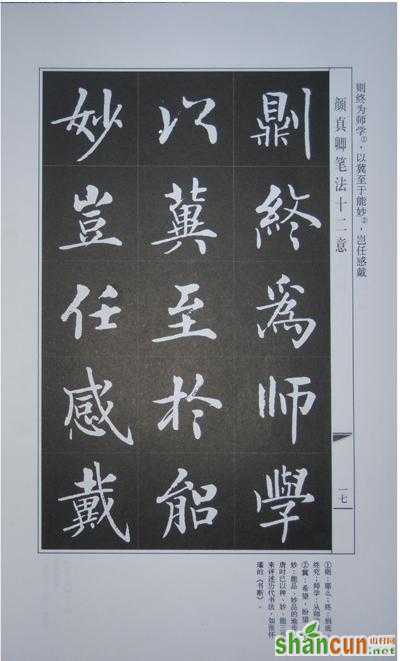 则终为师学①，以冀至于能妙②，岂任感戴
颜真卿笔法十二意
一七
則終為師學
以冀至於能
妙豈任感戴
①则：那么；终：彻底
终究；师学：从师
②冀：希望，盼望
妙：能品、妙品的
唐时已以神、妙、能三
来评述历代书法，如张怀
瓘的《书断》。
shancun
山村网
.net